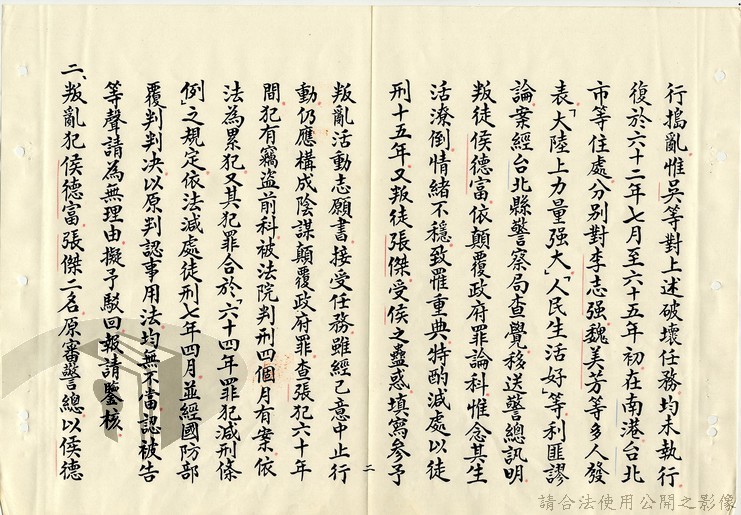 行搗亂惟吳等對上述破壞任務均未執行
復於六十二年七月至六十五年初在南港台北
市等住處分別對李志强魏美芳等多人發
表「大陸上力量强大」「人民生活好」等利匪謬
論案經台北縣警察局查覺移送警總訊明
叛徒侯德富依顛覆政府罪論科惟念其生
活潦倒情緒不穩致罹重典特酌減處以徒
刑十五年又叛徒張傑受侯之蠱惑填寫參予
叛亂活動志願書接受任務雖經己意中止行
動仍應構成陰謀顛覆政府罪查張犯六十年
間犯有竊盜前科被法院判刑四個月有案依
法為累犯又其犯罪合於「六十四年罪犯減刑條
例」之規定依法減處徒刑七年四月並經國防部
覆判判決以原判認事用法均無不當認被告
等聲請為無理由擬予駁回報請鑒核
二、叛亂犯侯德富張傑二名原審警總以侯德
二
請合法使用公開之影像